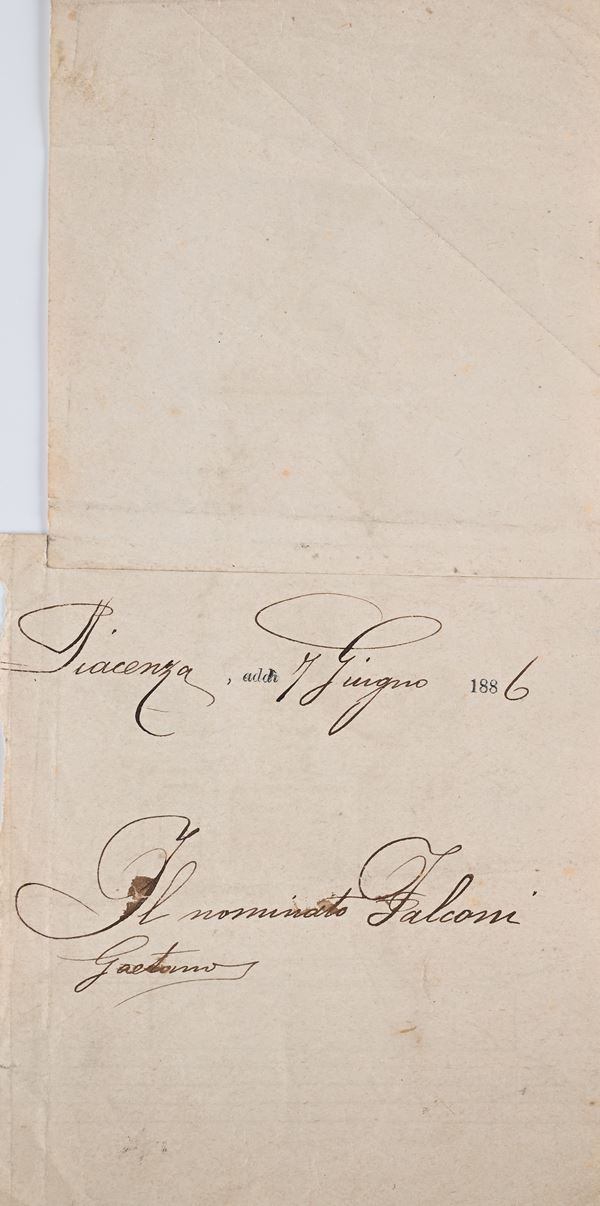 Piacenza, addì 7 Giugno 1886
Il nominato Falconi
Gaetano